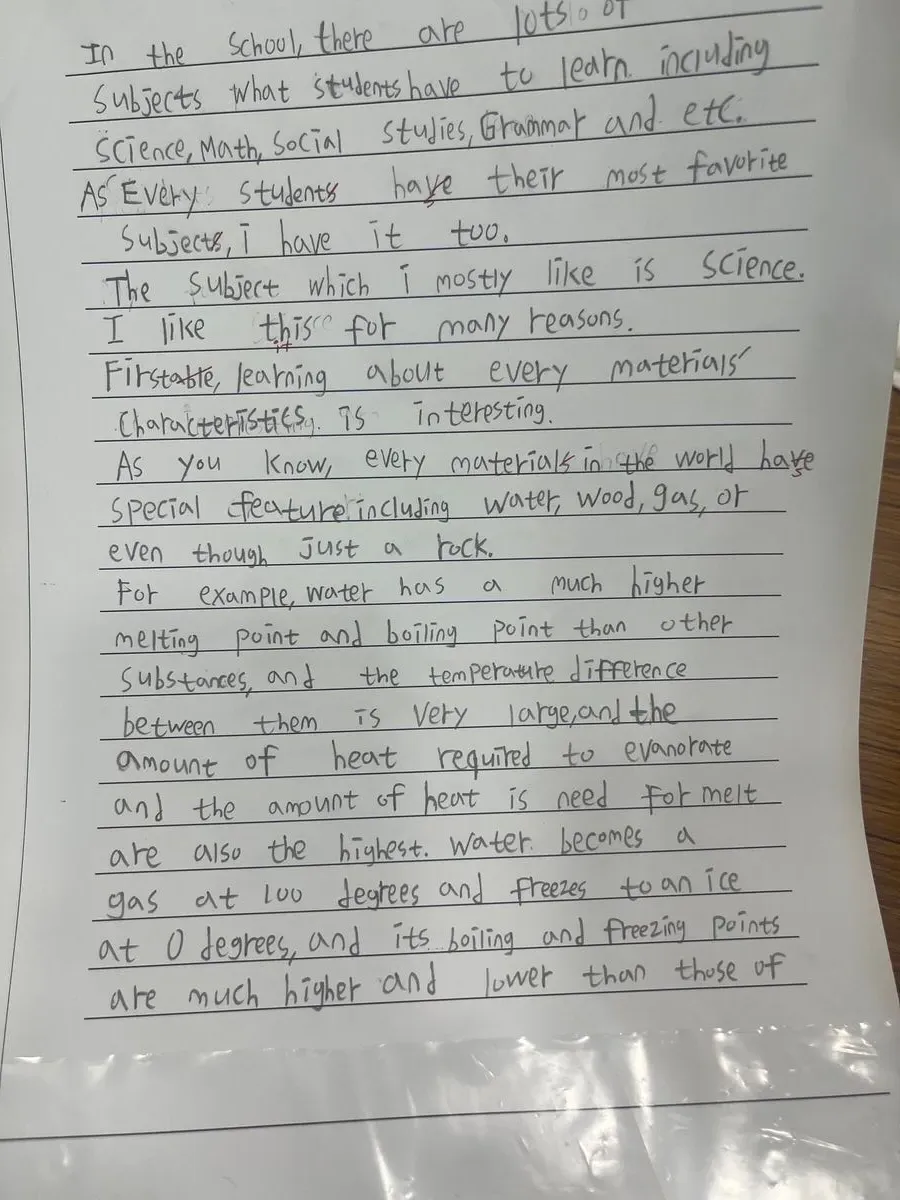 In the school, there are lots of
subjects what students have to learn including
science, Math, social studies, Grammar and etc.
As Every students have their most favorite
subjects, i have it too.
The subject which i mostly like is science.
I like this for many reasons.
it
Firstable, learning about every materials'
characteristics is interesting.
As you know, every materials in the world have
s
special feature including water, wood, gas, or
even though just a rock.
For example, water has a much higher
melting point and boiling point than other
substances, and the temperature difference
between them is very large, and the
amount of heat required to evanorate
and the amount of heat is need for melt
are also the highest. water becomes a
gas at 100 degrees and freezes to an ice
at 0 degrees, and its boiling and freezing points
are much higher and lower than those of